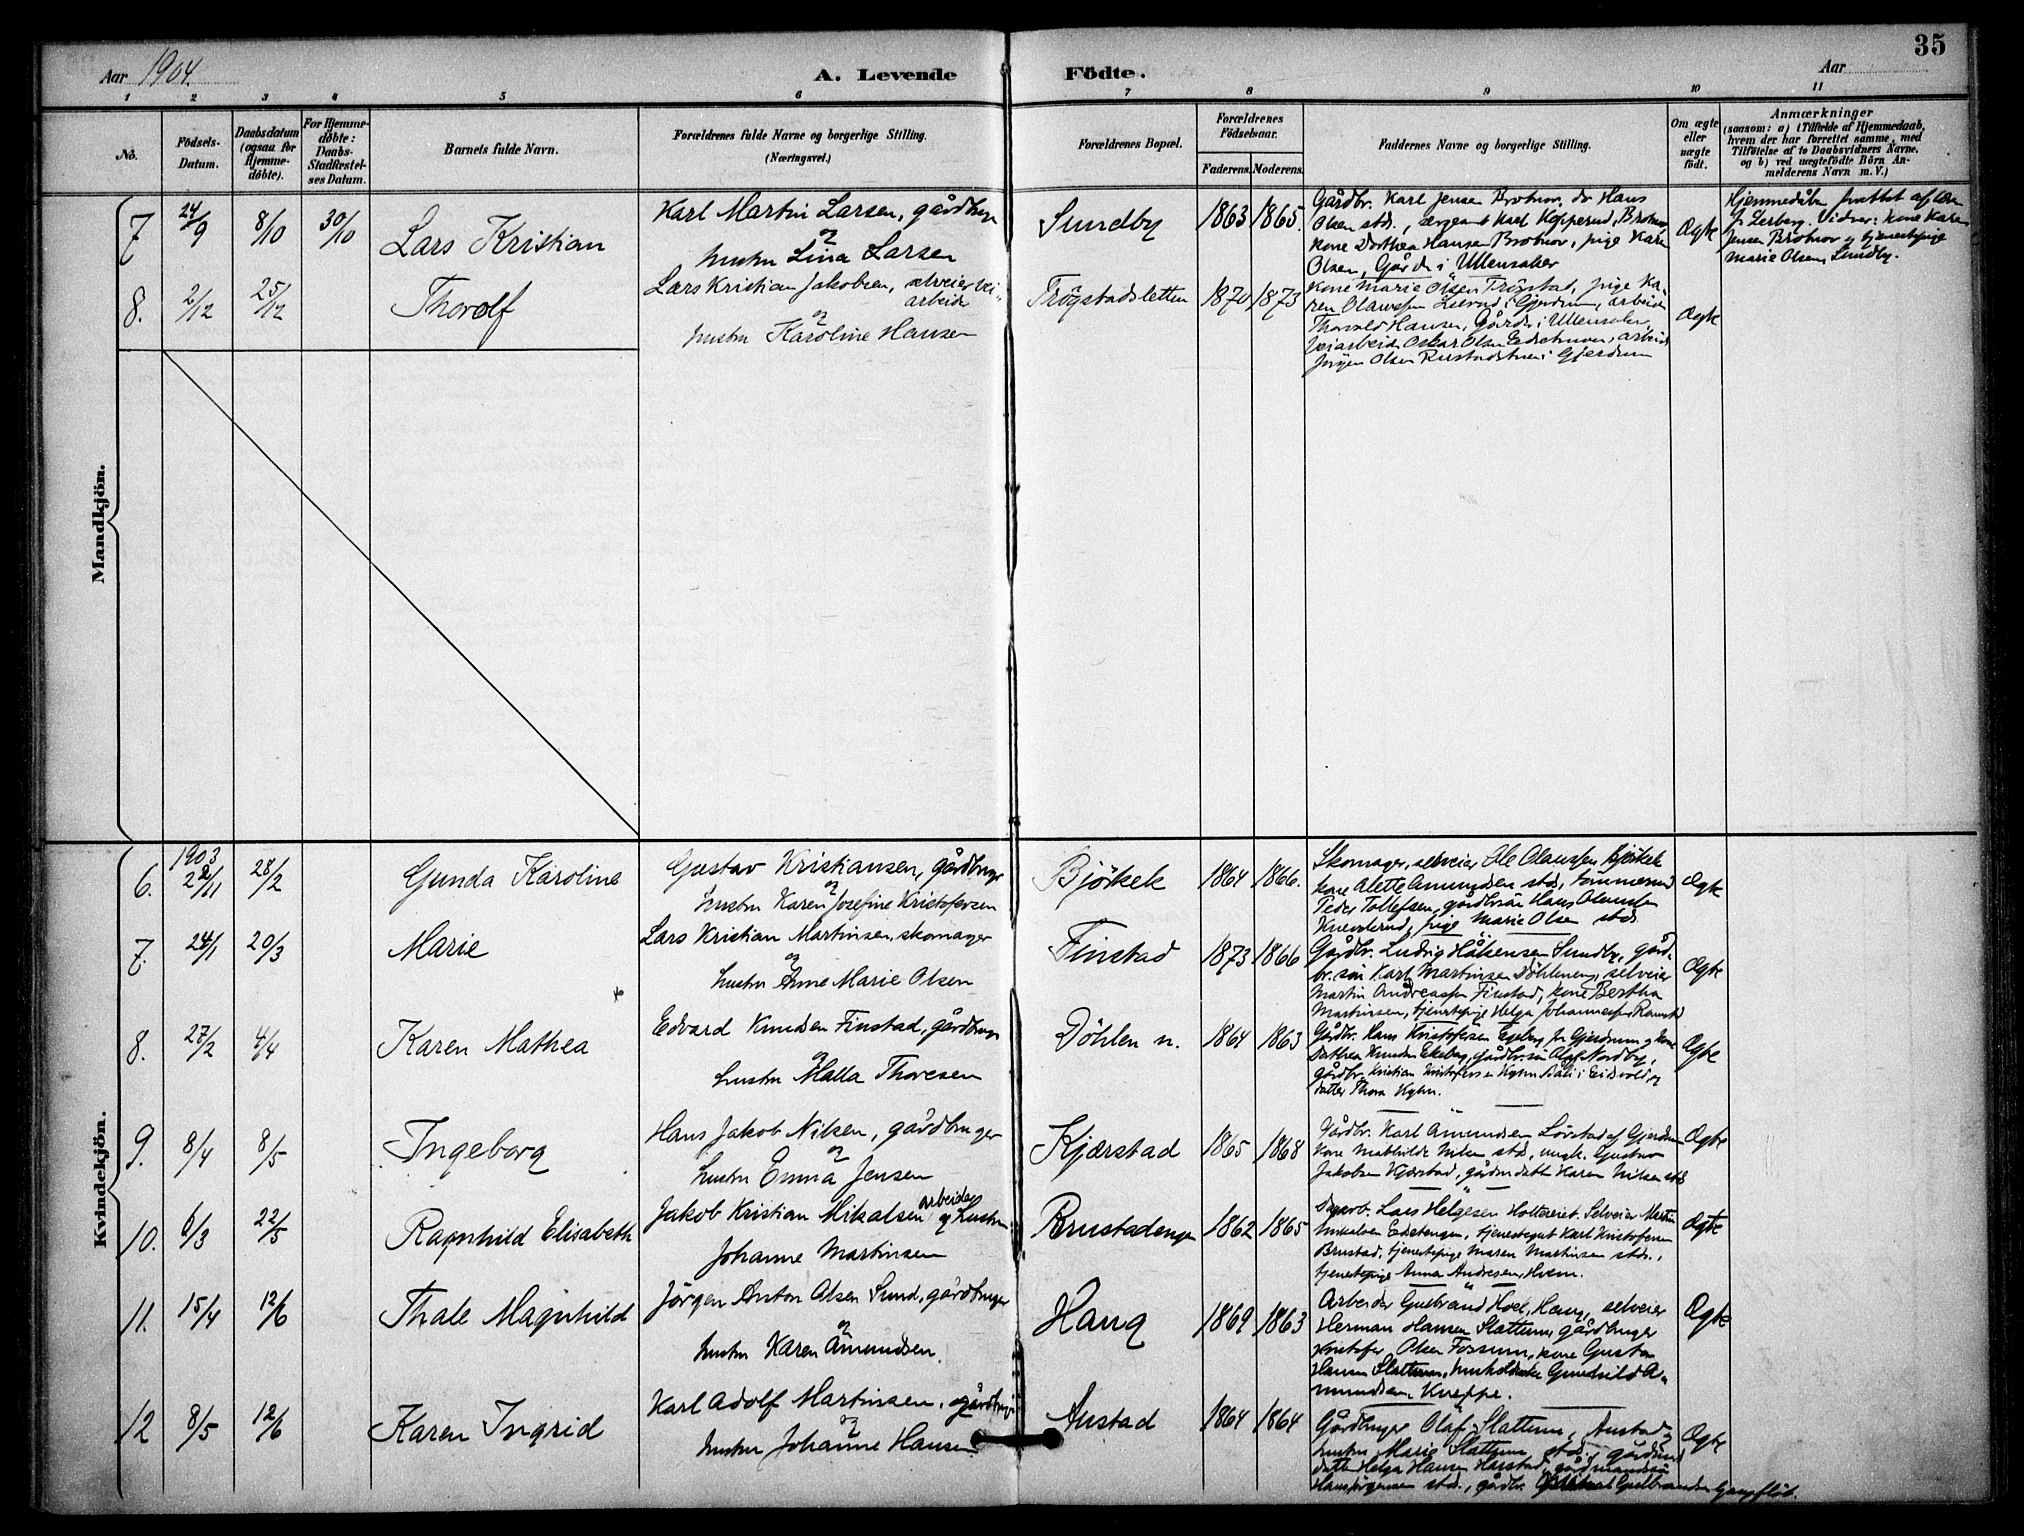 35
Aar 1904.
A. Levende Födte.
Aar
1 2 3 4 5 6 7 8 9 10 11
No.
Födsels-
Datum.
Daabsdatum
(ogsaa for
Hjemme-
döbte).
For Hjemme-
döbte:
Daabs-
Stadfæstel-
ses Datum.
Barnets fulde Navn.
Forældrenes fulde Navne og borgerlige Stilling.
(Næringsvei.)
Forældrenes Bopæl.
Forældrenes
Födselsaar.
Faderens. Moderens.
Faddernes Navne og borgerlige Stilling.
Om ægte
eller
uægte
födt.
Anmærkninger
(saasom: a) i Tilfælde af Hjemmedaab,
hvem der har forrettet samme, med
Tilföielse af to Daabsvidners Navne.
og b) ved uægtefödte Börn An-
melderens Navn m. V.)
Mandkjön.
7 24/9 8/10 30/10 Lars Kristian
Karl Martin Larsen, gårdbruger
og
hustru Lina Larsen
Sundby 1863 1865.
Gårdbr. Karl Jensen Brotnov, do Hans
Olsen stds., Kopperud, Brotnov
kone Dorthea Hansen Brotnov, pige Karen
Olsen, Gårder i Ullensaker
Ægte
Hjemmedåben forrettet af
J. Lerberg. Vidner: kone Karen
Jensen Brotnov og tjenestepige
Marie Olsen, Sundby.
8. 2/12 25/12 Thorolf
Lars Kristian Jakobsen, selveier, vei-
arbeider
og
hustru Karoline Hansen
Trögstadsletten 1870 1873
Kone Marie Olsen Trögstad, pige Ka-
ren Olaussen Leirud i Gjerdrum, arbeider
Thorvald Hansen, Gårder i Ullensaker,
veiarbeider Oskar Olsen arbeider
Jörgen Olsen Rustadstuen i Gjerdrum
Ægte
Kvindekjön.
6. 1903
22/11 28/2 Gunda Karoline
Gustav Kristiansen, gårdbruger
og
hustru Karen Josefine Kristofersen
Björkek 1864 1866.
Skomager, selveier Ole Olaussen Björkek
kone Alette Amundsen stds, tömmermd
Peder Tollefsen, gårdbrsön Hans
pige Marie Olsen stds.
Ægte
7. 24/1 20/3 Marie
Lars Kristian Martinsen, skomager
og
hustru Anne Marie Olsen
Finstad 1873 1866
Gårdbr. Ludvig Håkensen Sundby, gård-
br. sön Karl Martinsen Döhlen, selveier
Martin Andreassen Finstad, kone Bertha
Martinsen, tjenestepige Helga Johannesen
Ægte
8. 27/2 4/4 Karen Mathea
Edvard Knudsen Finstad, gårdbruger
og
hustru Malla Thoresen
Döhlen n. 1864 1863
Gårdbr. Hans Kristofersen Egeberg fr Gjerdrum og kone
Dorthea Knudsen Ekeberg, gårdbr.sön Olaf Nordby,
gårdbr. Kristian Kristofersen i Eidsvold, og
datter Thora
Ægte
9. 8/4 8/5 Ingeborg
Hans Jakob Nilsen, gårdbruger
og
hustru Emma Jensen
Kjærstad 1865 1868
Gårdbr. Karl Amundsen Lövstad af Gjerdrum
kone Mathilde Nilsen stds, ungk. Gustav
Jakobsen Kjærstad, gårdm.datt. Karen Nilsen stds
Ægte
10. 6/3 22/5 Ragnhild Elisabeth
Jakob Kristian Mikalsen arbeider og hustru
Johanne Martinsen
Brustadenga 1862 1865
Lars Helgesen Selveier Martin
Mikalsen tjenestegut Karl Kristofersen
Brustad, tjenestepige Maren Martinsen stds.,
tjenestepige Anna Andresen, Hvem.
Ægte
11. 15/4 12/6 Thale Magnhild
Jörgen Anton Olsen Sund, gårdbruger
og
hustru Karen Amundsen.
Haug 1869 1863
Arbeider Gudbrand Hoel, Haug, selveier
Herman Hansen Slattum, gårdbruger
Kristofer Olsen Fossum, kone Gusta
Hansen Slattum, husholderske Gunhild A-
mundsen, Kneppe.
Ægte
12 8/5 12/6 Karen Ingrid
Karl Adolf Martinsen, gårdbruger
og
hustru Johanne Hansen
Austad 1864 1864
Gårdbruger Olaf Slattum, Austad og
hustru Marie Slattum, stds., gårdm.
datter Helga Hansen Harstad, gårdmandsön
Hans Jörgensen stds., gårdbr. Gulbrandsen
Ægte